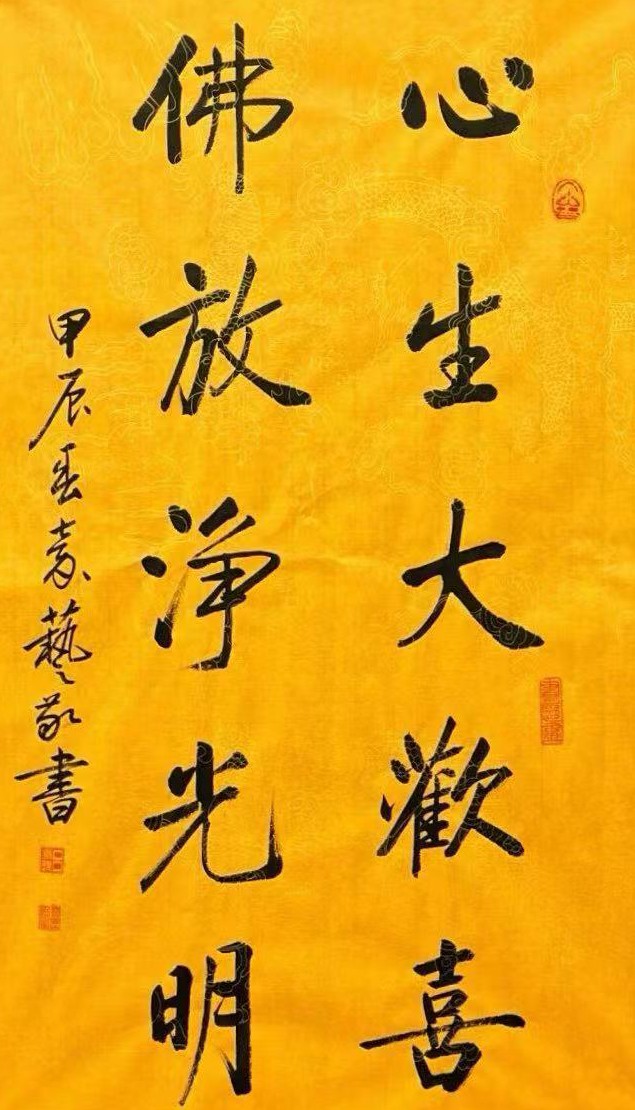 心生大歡喜
佛放淨光明
甲辰春嘉藝敬書